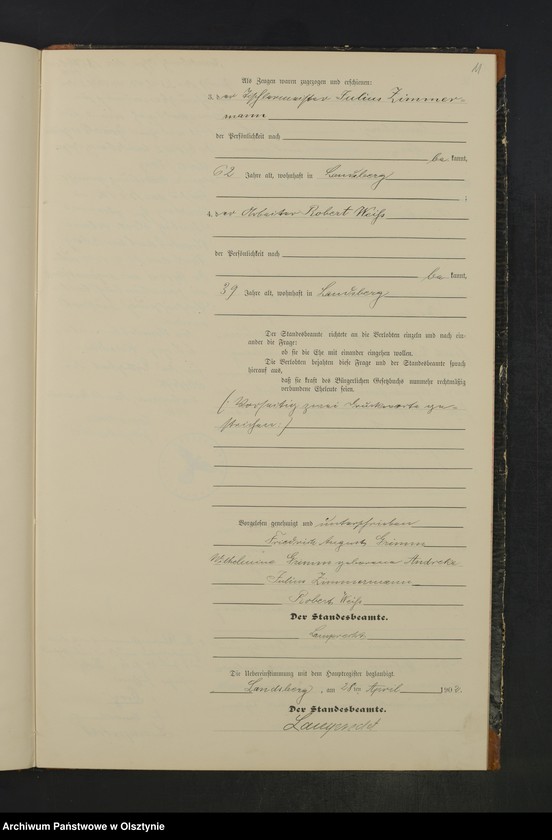 11
Als Zeugen waren zugezogen und erschienen:
3. der Tischlermeister Julius Zimmer-
mann
der Persönlichkeit nach
be kannt,
62 Jahre alt, wohnhaft in Landsberg
;
4. der Arbeiter Robert Weiß
der Persönlichkeit nach
be kannt,
39 Jahre alt, wohnhaft in Landsberg
Der Standesbeamte richtete an die Verlobten einzeln und nach ein-
ander die Frage:
ob sie die Ehe mit einander eingehen wollen.
Die Verlobten bejahten diese Frage und der Standesbeamte sprach
hierauf aus,
daß sie kraft des Bürgerlichen Gesetzbuchs nunmehr rechtmäßig
verbundene Eheleute seien.
(: Vorseitig zwei Druckworte ge-
strichen :)
Vorgelesen, genehmigt und unterschrieben
Friedrich August Grimm
Wilhelmine Grimm geborene
Julius Zimmermann
Robert Weiß
Der Standesbeamte.
Lamprecht
Die Uebereinstimmung mit dem Hauptregister beglaubigt.
Landsberg, am April 190
Der Standesbeamte.
Lamprecht
Archiwum Państwowe w Olsztynie